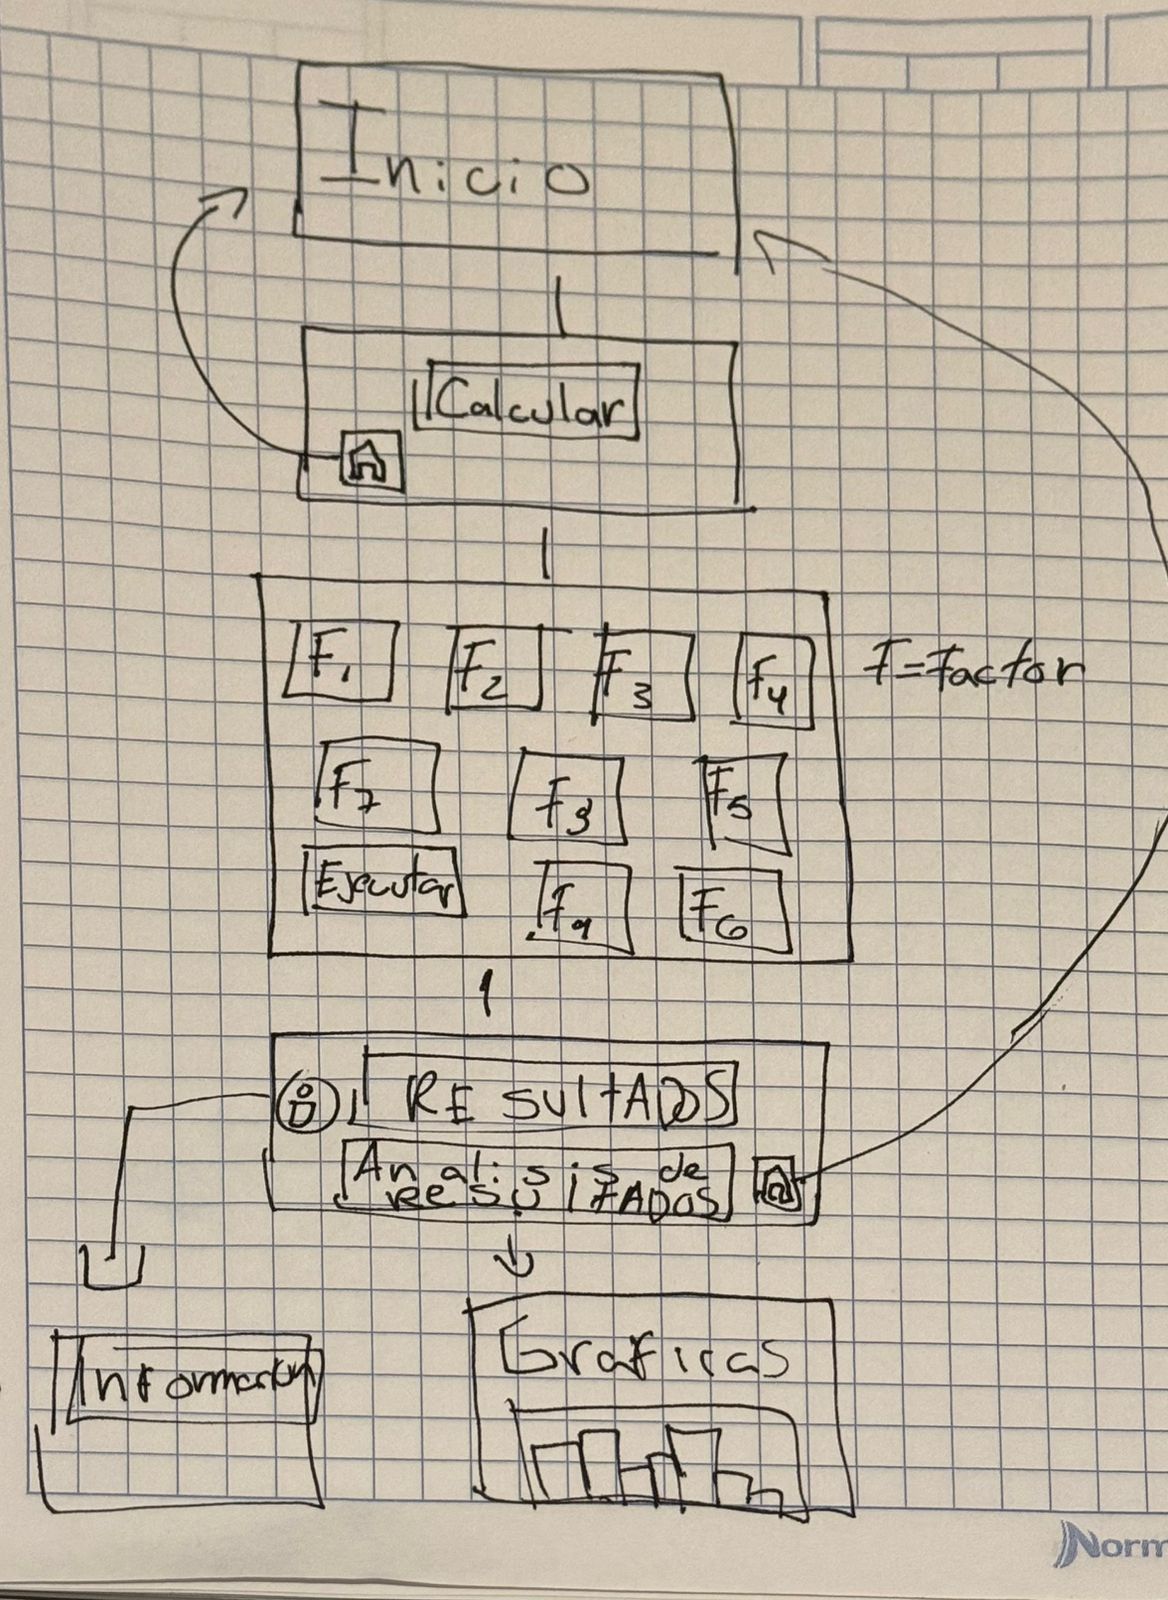 Inicio
Calcular
F1 F2 F3 F4
F=Factor
F7 F8 F5
Ejecutar F9 F6
i RESultADOS
Analisis de
resultADOS
Graficas
Información
Norm